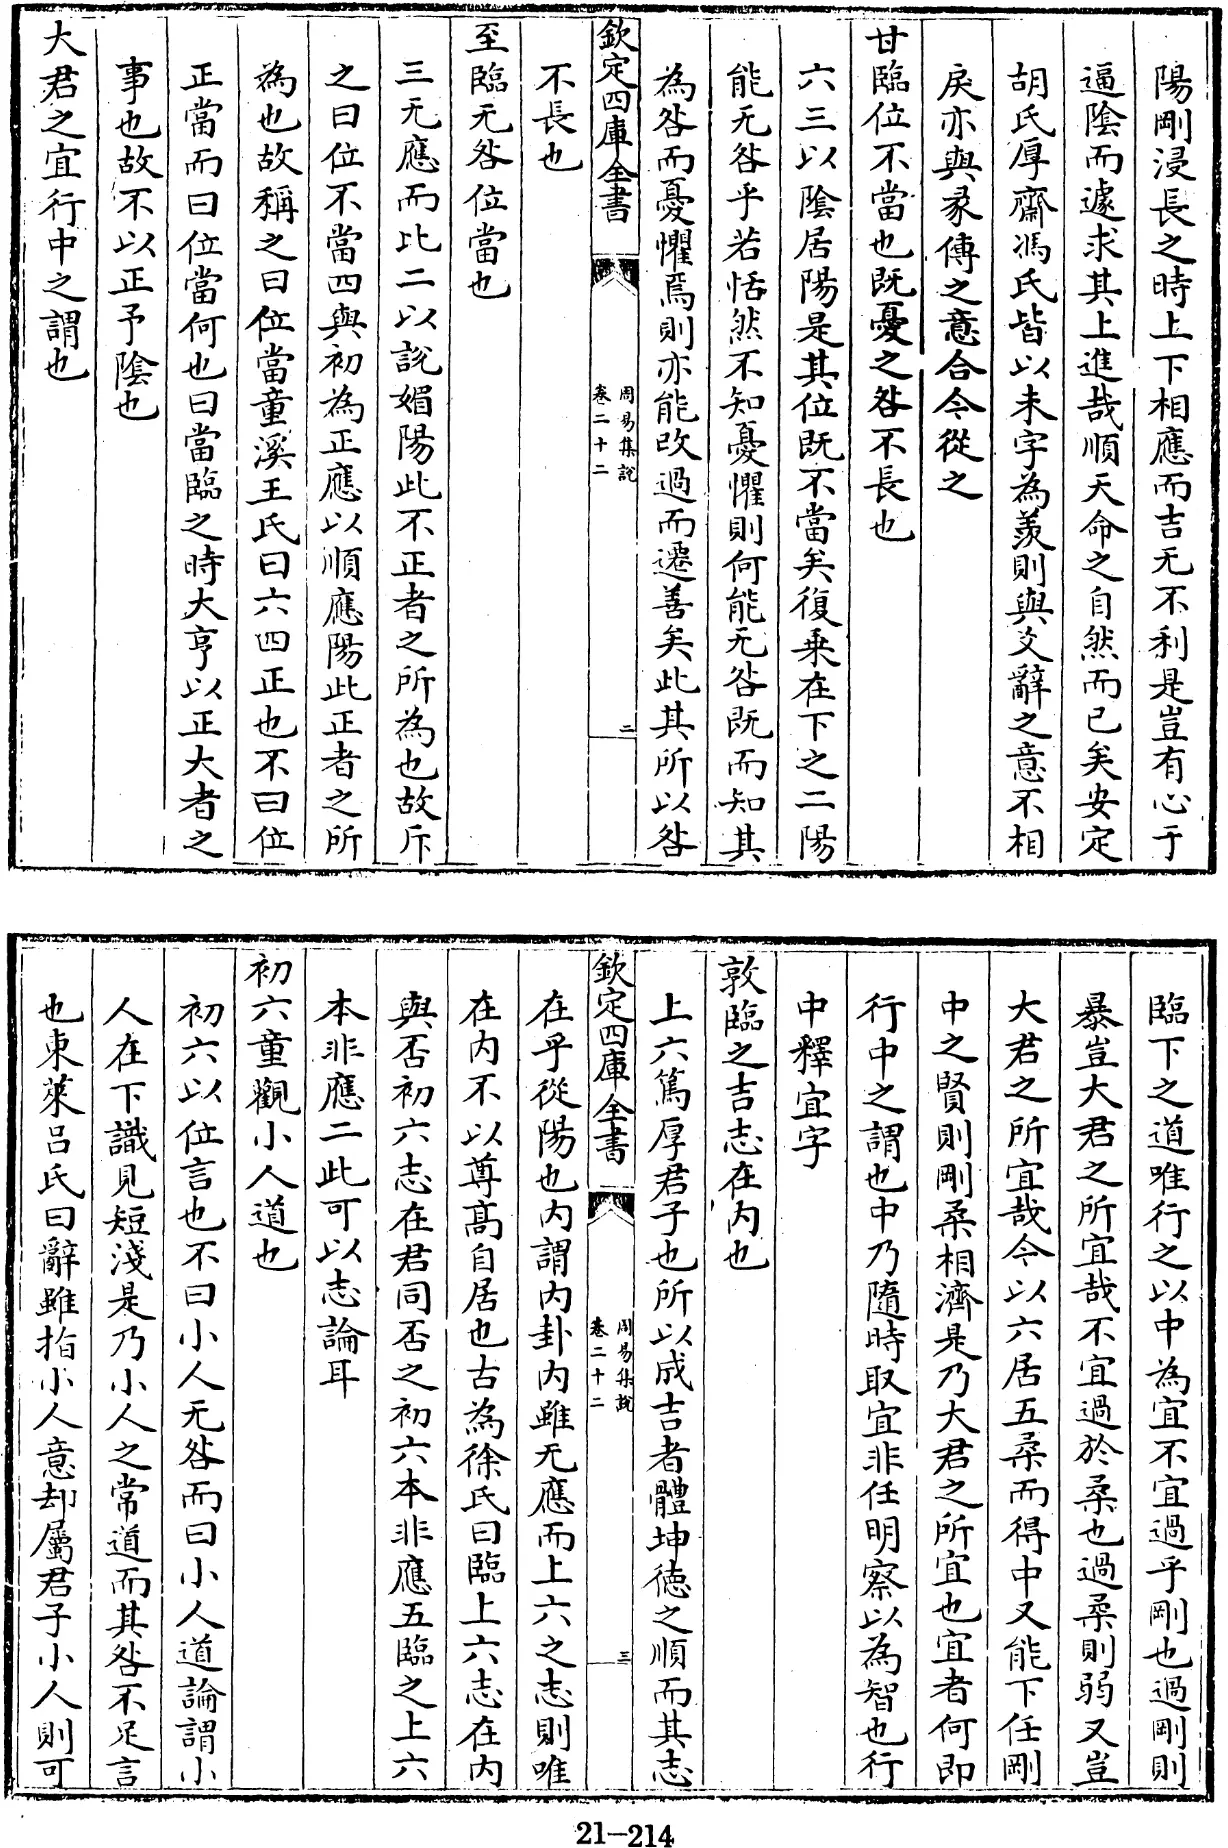 陽剛浸長之時上下相應而吉无不利是豈有心于
逼陰而遽求其上進哉順天命之自然而已矣安定
胡氏厚齋馮氏皆以未字為羨則與爻辭之意不相
戾亦與彖傳之意合今從之
甘臨位不當也既憂之咎不長也
六三以陰居陽是其位既不當矣復乗在下之二陽
能无咎乎若恬然不知憂懼則何能无咎既而知其
為咎而憂懼焉則亦能改過而遷善矣此其所以咎
欽定四庫全書
周易集說
卷二十二
二
不長也
至臨无咎位當也
三无應而比二以說媚陽此不正者之所為也故斥
之曰位不當四與初為正應以順應陽此正者之所
為也故稱之曰位當童溪王氏曰六四正也不曰位
正當而曰位當何也曰當臨之時大亨以正大者之
事也故不以正予陰也
大君之宜行中之謂也
臨下之道唯行之以中為宜不宜過乎剛也過剛則
暴豈大君之所宜哉不宜過於柔也過柔則弱又豈
大君之所宜哉今以六居五柔而得中又能下任剛
中之賢則剛柔相濟是乃大君之所宜也宜者何即
行中之謂也中乃隨時取宜非任明察以為智也行
中釋宜字
敦臨之吉志在内也
上六篤厚君子也所以成吉者體坤徳之順而其志
欽定四庫全書
周易集說
卷二十二
三
在乎從陽也内謂内卦内雖无應而上六之志則唯
在内不以尊高自居也古為徐氏曰臨上六志在内
與否初六志在君同否之初六本非應五臨之上六
本非應二此可以志論耳
初六童觀小人道也
初六以位言也不曰小人无咎而曰小人道論謂小
人在下識見短淺是乃小人之常道而其咎不足言
也東萊呂氏曰辭雖指小人意却屬君子小人則可
21-214